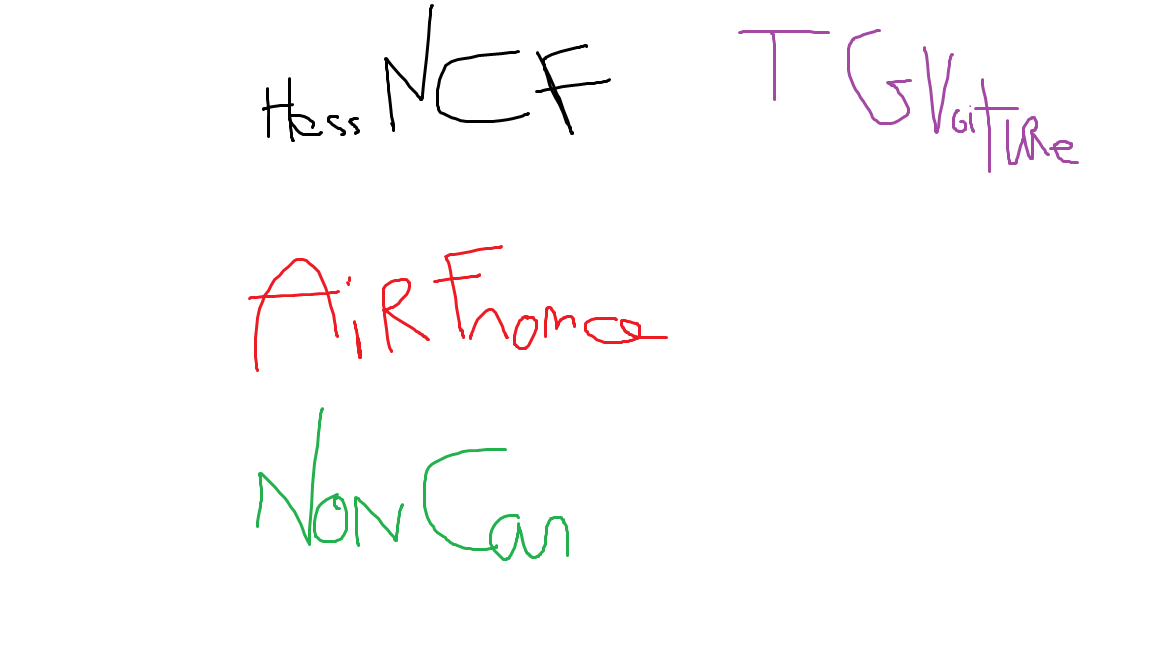 Hess NCF
TGVoiture
AiR France
NoN Can